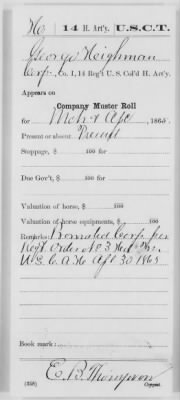 H | 14 H. Art'y. | U.S.C.T.
George Heighman
Corp., Co. I, 14 Reg't U. S. Col'd H. Art'y.
Appears on
Company Muster Roll
for Mch & Apl, 1865.
Present or absent Present
Stoppage, $ 100 for
Due Gov't, $ 100 for
Valuation of horse, $ 100
Valuation of horse equipments, $ 100
Remarks: Promoted Corp. per
Regt Order No 3
U.S.C.A. Apl 30 1865
Book mark:
E. B. Thompson
(358) Copyist.